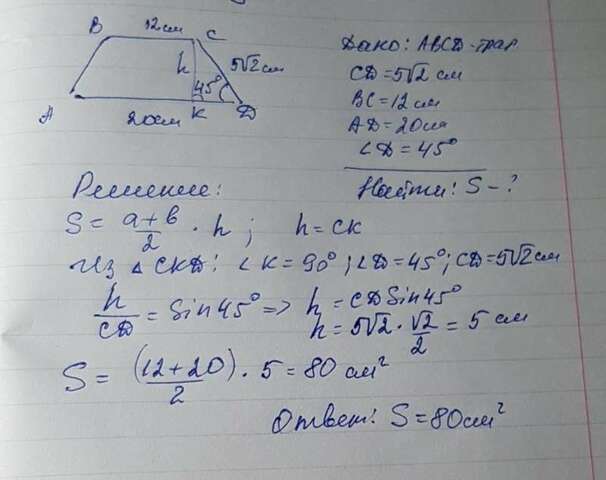 B 12см C
h 45° 5√2 см
A 20см K D
Дано: ABCD-трап
CD=5√2 см
BC=12см
AD=20см
∠D=45°
Найти: S-?
Решение:
S= a+b/2 · h; h=CK
Из △CKD: ∠K=90°; ∠D=45°; CD=5√2 см
h/CD = Sin45° => h=CDSin45°
h=5√2 · √2/2 = 5 см
S= (12+20)/2 · 5=80 см²
Ответ: S=80см²